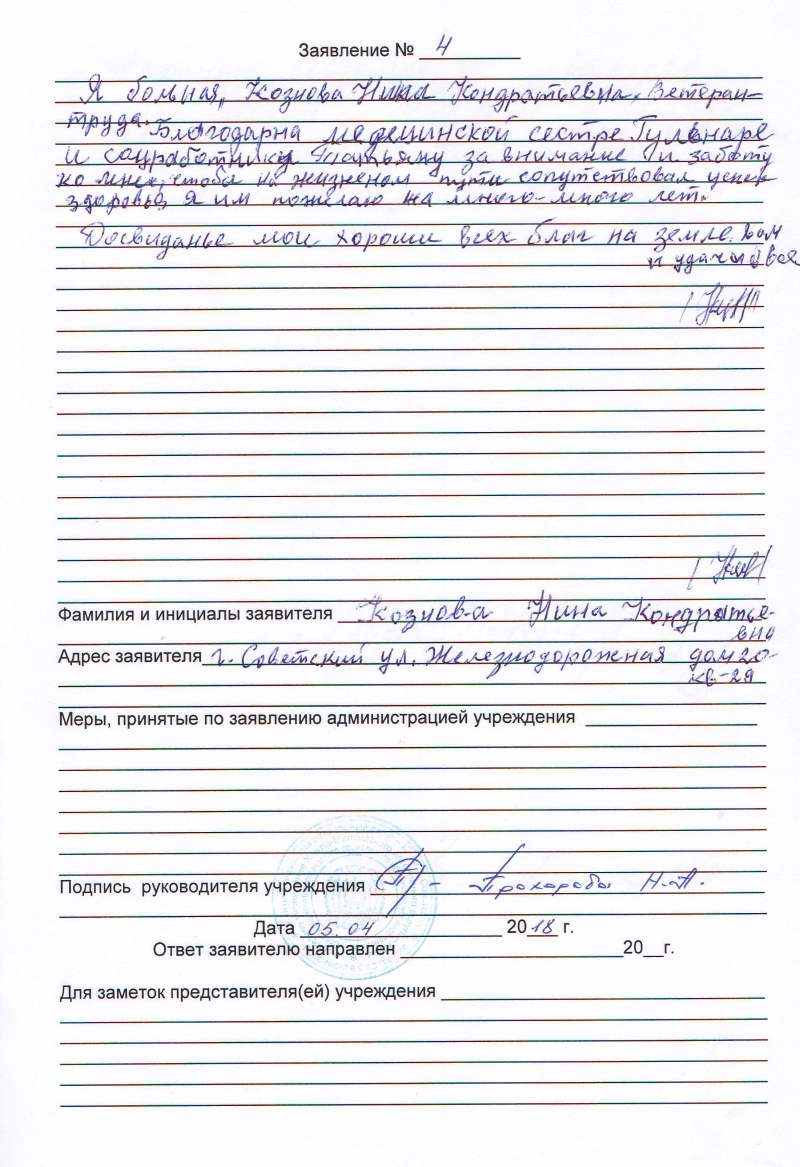 Заявление № 4
Я больная, Кознова Нина Кондратьевна, Ветеран
труда. Благодарна медецинской сестре Гульнаре
и соцработнику Татьяну за внимание и заботу
ко мне, чтобы на жизненом пути сопутствовал успех
здоровья я им пожелаю на много-много лет.
Досвиданье мои хороши всех благ на земле. Вам
и удачи
Фамилия и инициалы заявителя Кознова Нина Кондратье-
вна
Адрес заявителя г. Советский ул. Железнодорожная дом 20-
кв-29
Меры, принятые по заявлению администрацией учреждения
Подпись руководителя учреждения Прохорова Н.А.
Дата 05.04 2018 г.
Ответ заявителю направлен 20__г.
Для заметок представителя(ей) учреждения